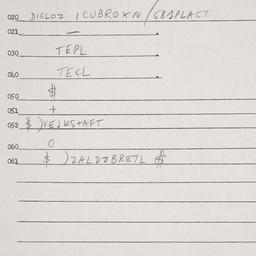 020 DIGLOZ ICUBROXN/GBSPLACT
021 — .
030 TEPL .
040 TECL .
050 $
051 +
052 $ )VEJKS+AFT
060 0
061 $ )ZALDZBRETL $